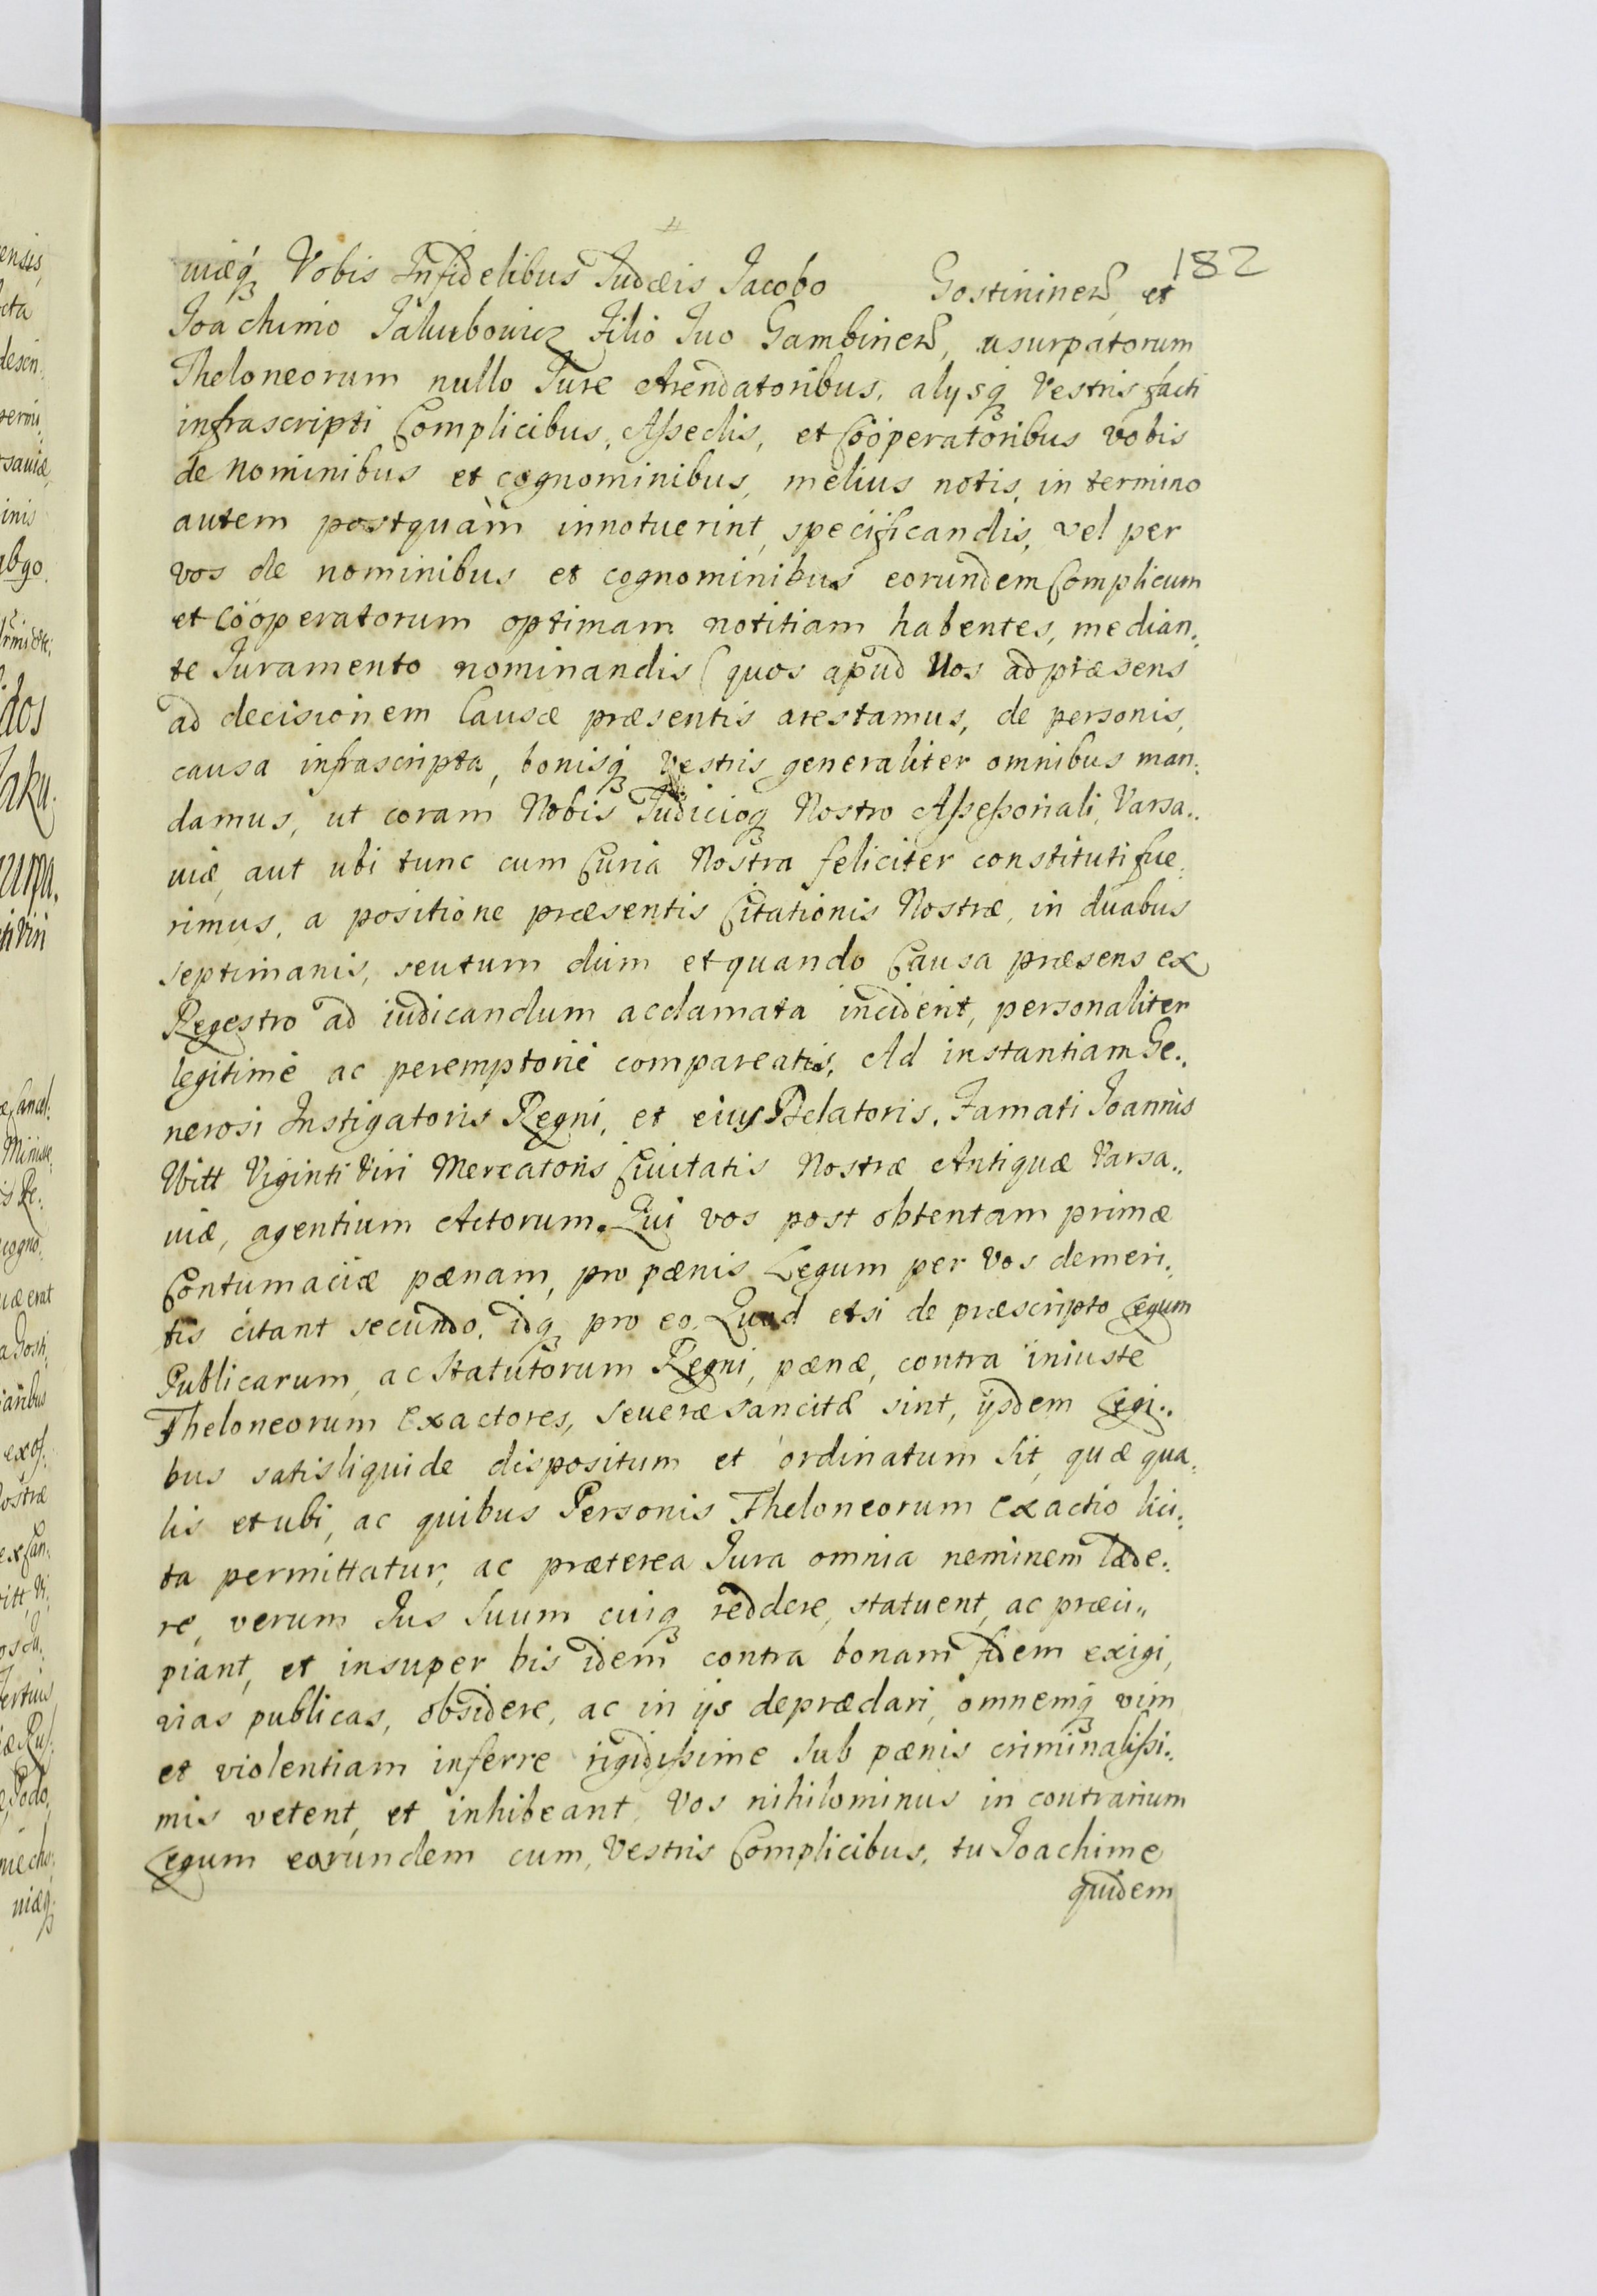 182
uiæq₃ Vobis Infidelibus Judæis Jacobo Gostininen, et
Joachimo Jakubowicz Filio Suo Gambinen, usurpatorum
Theloneorum nullo Jure Arendatoribus, alysq₃ Vestris facti
infrascripti Complicibus, Asseclis, et Cooperatoribus vobis
de nominibus et cognominibus, melius notis, in termino
autem postquàm innotuerint, specificandis, vel per
vos de nominibus et cognominibus eorundem Complicum
et Cooperatorum optimam notitiam habentes, median„
te Juramento nominandis (quos apud Vos ad præsens
ad decisionem Causæ præsentis arestamus, de personis,
causa infrascripta, bonisq₃ Vestris generaliter omnibus man„
damus, ut coram Nobis Judicioq₃ Nostro Assessoriali, Varsa„
uiæ, aut ubi tunc cum Curia Nostra feliciter constituti fue„
rimus, a positione præsentis Citationis Nostræ, in duabus
septimanis, seu tum dum et quando Causa præsens ex
Regestro ad iudicandum acclamata inciderit, personaliter
legitimè ac peremptoriè compareatis, Ad instantiam Ge„
nerosi Instigatoris Regni, et eius Delatoris, Famati Joannis
Witt Viginti Viri Mercatoris Ciuitatis Nostræ Antiquæ Varsa„
uiæ, agentium Actorum. Qui vos post obtentam primæ
Contumaciæ pænam, pro pænis Legum per Vos demeri„
tis citant secundo, idq₃ pro eo, Quod etsi de præscripto Legum
Publicarum, ac Statutorum Regni, pænæ, contra iniuste
Theloneorum Exactores, Seueræ sancitæ sint, ijsdem Legi„
bus satis liquide dispositum et ordinatum sit, quæ qua„
lis et ubi, ac quibus Personis Theloneorum Exactio lici„
ta permittatur, ac præterea Jura omnia neminem læde„
re, verum Jus Suum cuiq₃ reddere, statuent, ac præci„
piant, et insuper bis idem contra bonam fidem exigi,
vias publicas, obsidere, ac in ijs deprædari, omnemq₃ vim
et violentiam inferre rigidissime sub pænis criminalissi„
mis vetent, et inhibeant, Vos nihilominus in contrarium
Legum eorundem cum, Vestris Complicibus, tu Joachime
quidem